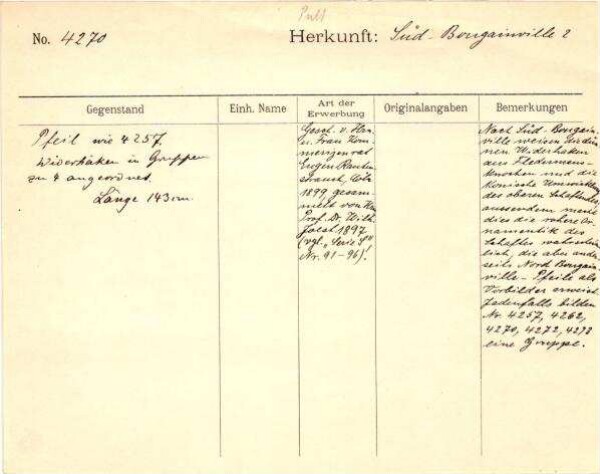 Pult
No. 4270
Herkunft: Süd-Bougainville ?
Gegenstand
Einh. Name
Art der Erwerbung
Originalangaben
Bemerkungen
Pfeil wie 4257.
Widerhaken in Gruppen
zu 4 angeordnet.
Länge 143 cm.
Gesch. v. Hrn.
u. Frau Kom-
merzienrat
Eugen Rauten-
strauch, Cöln
1899 gesam-
melt von Hrn.
Prof. Dr. Wilh.
Joest 1897
(vgl. „Serie S"
Nr. 91-96)!
Nach Süd-Bougain-
ville weisen die dün-
nen Widerhaken
aus Fledermaus-
knochen und die
konische Umwicklung
des oberen Schaftendes,
ausserdem macht
dies die rohere Or-
namentik des
Schaftes wahrschein-
lich, die aber ander-
seits Nord Bougain-
ville-Pfeile als
Vorbilder erweist.
Jedenfalls bilden
Nr. 4257, 4262,
4270, 4272, 4278
eine Gruppe.